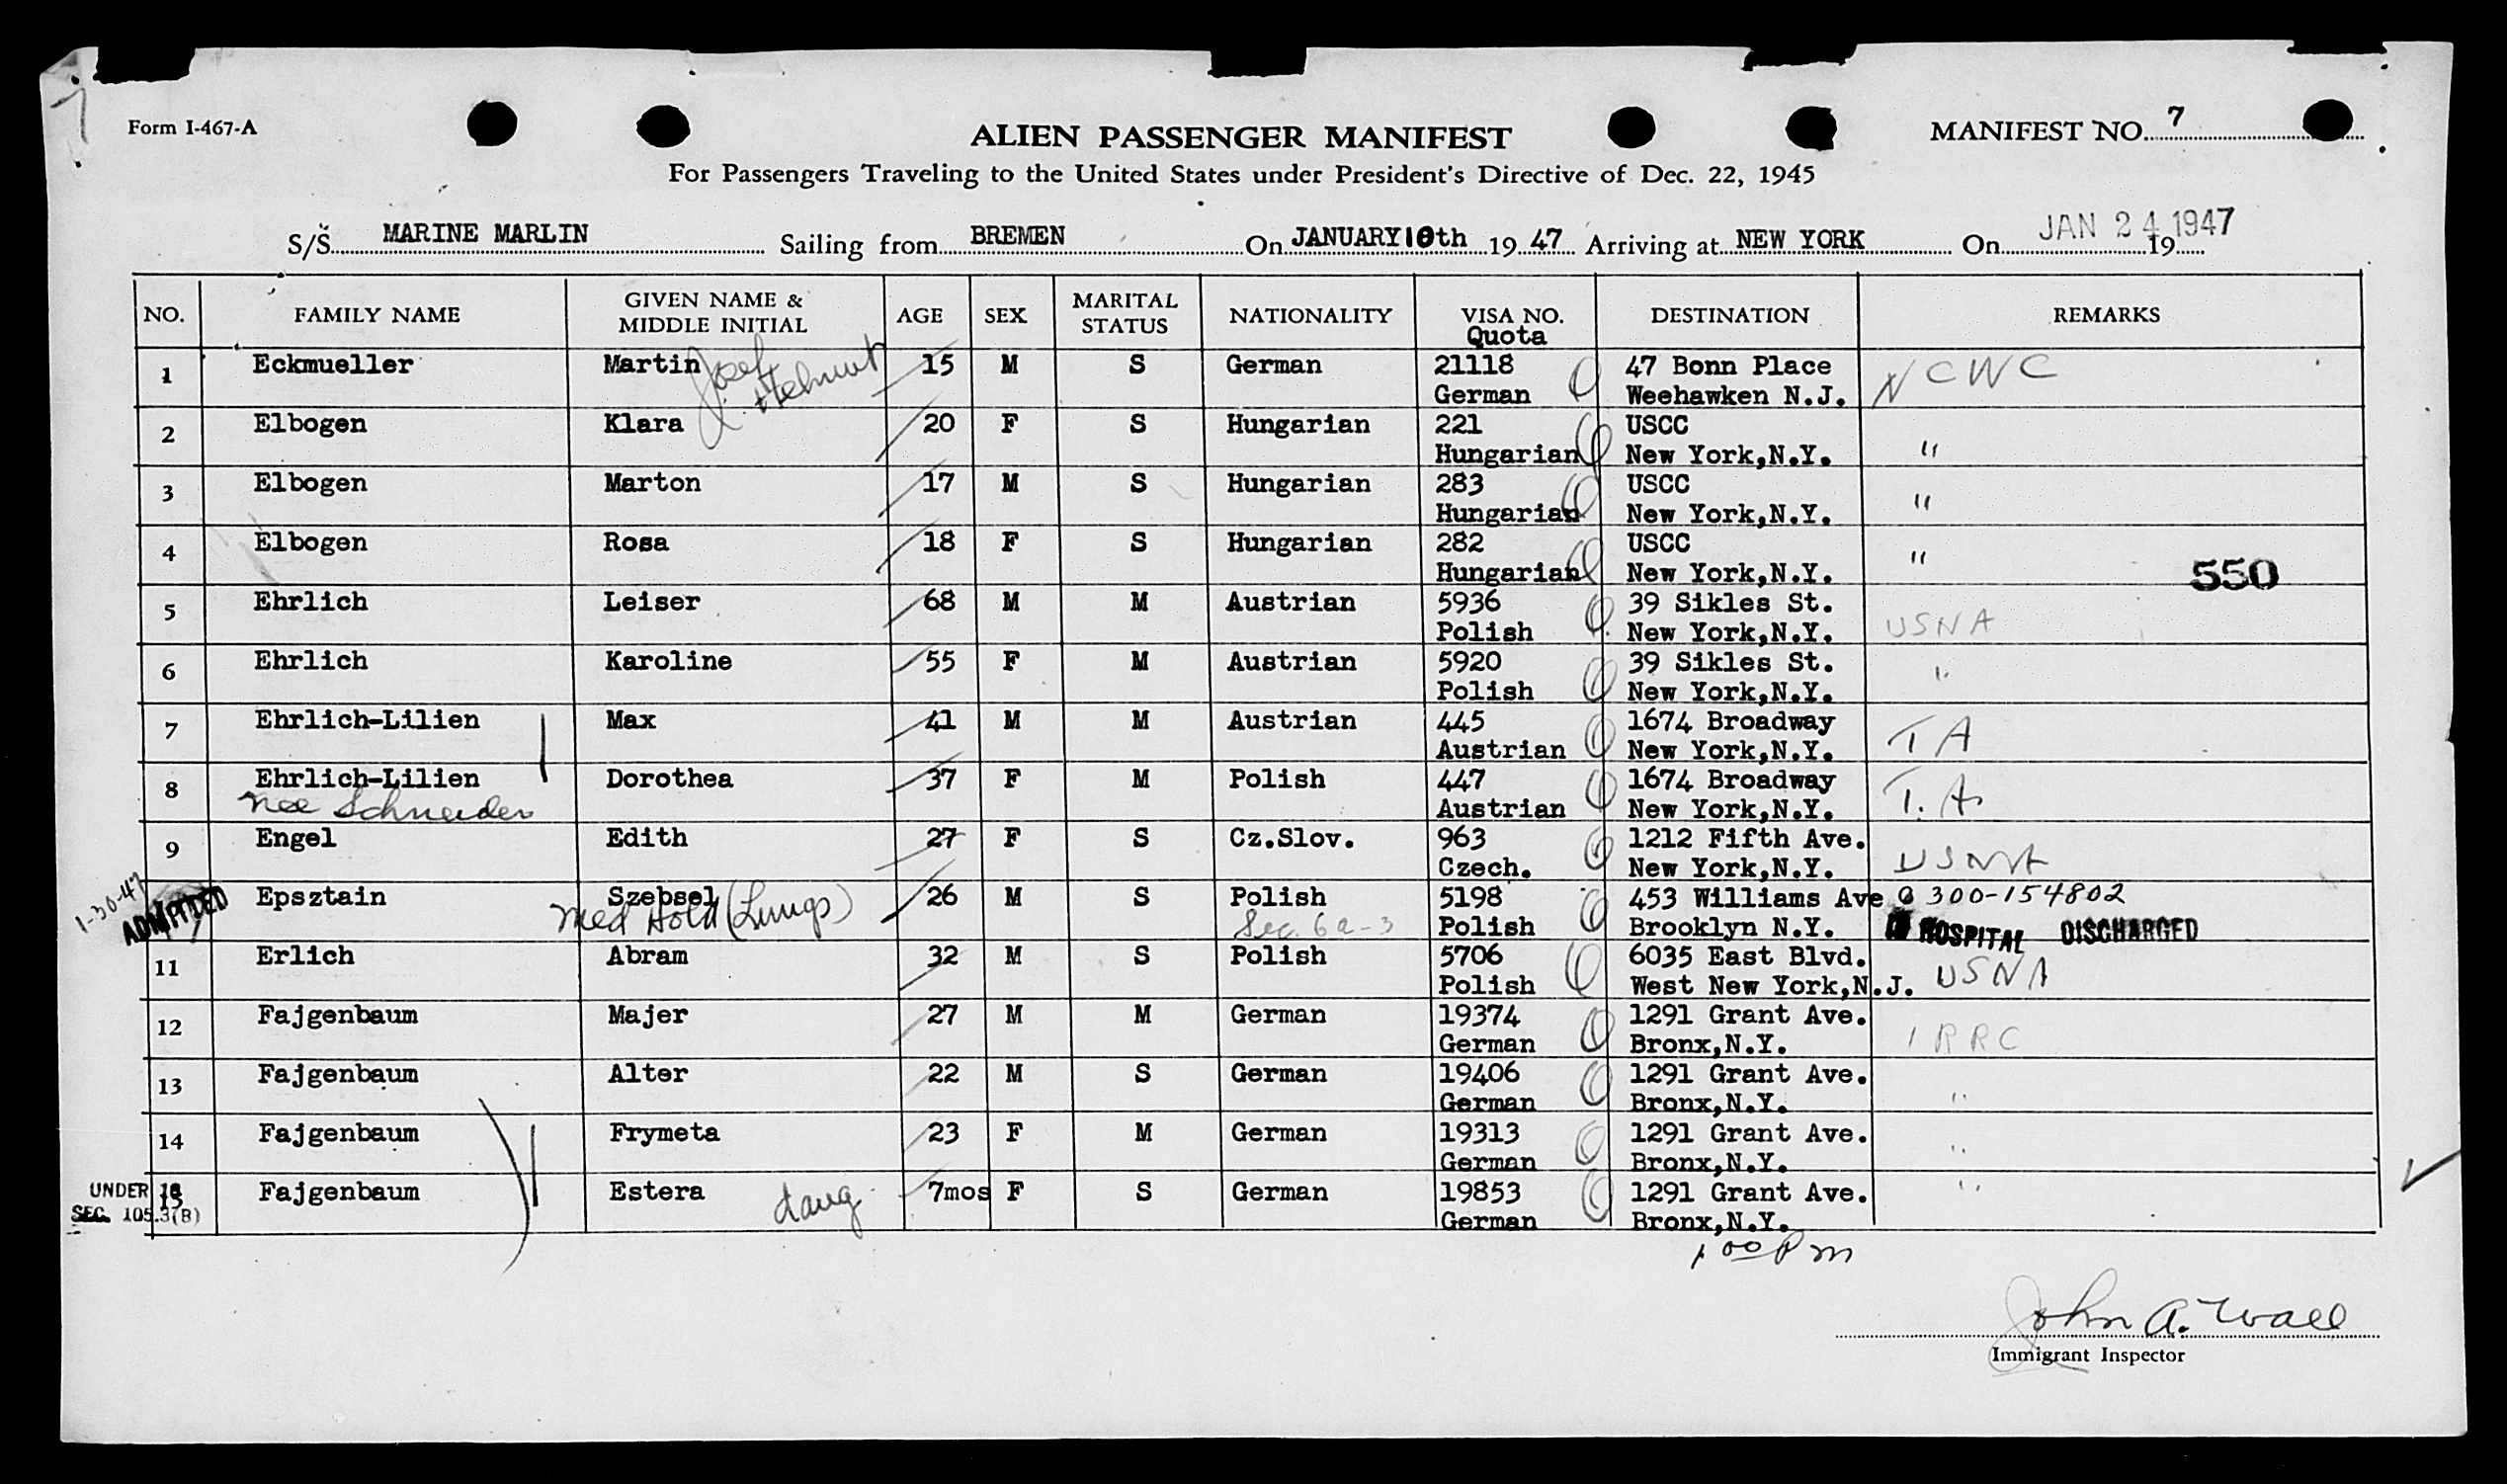 7
Form I-467-A
ALIEN PASSENGER MANIFEST
MANIFEST NO. 7
For Passengers Traveling to the United States under President's Directive of Dec. 22, 1945
S/S MARINE MARLIN Sailing from BREMEN On JANUARY 10th 19 47 Arriving at NEW YORK On JAN 24 1947 19
NO. FAMILY NAME GIVEN NAME & MIDDLE INITIAL AGE SEX MARITAL STATUS NATIONALITY VISA NO. Quota DESTINATION REMARKS
1 Eckmueller Martin Josef Helmut 15 M S German 21118 47 Bonn Place NCWC
German Weehawken N.J.
2 Elbogen Klara 20 F S Hungarian 221 USCC "
Hungarian New York,N.Y.
3 Elbogen Marton 17 M S Hungarian 283 USCC "
Hungarian New York,N.Y.
4 Elbogen Rosa 18 F S Hungarian 282 USCC "
Hungarian New York,N.Y. 550
5 Ehrlich Leiser 68 M M Austrian 5936 39 Sikles St. USNA
Polish New York,N.Y.
6 Ehrlich Karoline 55 F M Austrian 5920 39 Sikles St. "
Polish New York,N.Y.
7 Ehrlich-Lilien Max 41 M M Austrian 445 1674 Broadway TA
Austrian New York,N.Y.
8 Ehrlich-Lilien Dorothea 37 F M Polish 447 1674 Broadway T.A.
nee Schneider Austrian New York,N.Y.
9 Engel Edith 27 F S Cz.Slov. 963 1212 Fifth Ave. USNA
Czech. New York,N.Y.
1-30-47 ADMITTED Epsztain Szebsel 26 M S Polish 5198 453 Williams Ave 300-154802
Med Hold (Lungs) Sec. 6a-3 Polish Brooklyn N.Y. HOSPITAL DISCHARGED
11 Erlich Abram 32 M S Polish 5706 6035 East Blvd. USNA
Polish West New York,N.J.
12 Fajgenbaum Majer 27 M M German 19374 1291 Grant Ave. IRRC
German Bronx,N.Y.
13 Fajgenbaum Alter 22 M S German 19406 1291 Grant Ave. "
German Bronx,N.Y.
14 Fajgenbaum Frymeta 23 F M German 19313 1291 Grant Ave. "
German Bronx,N.Y.
UNDER 16 15 Fajgenbaum Estera daug. 7mos F S German 19853 1291 Grant Ave. "
SEC. 105.3(B) German Bronx,N.Y.
1 00 PM
John A. Wall
Immigrant Inspector